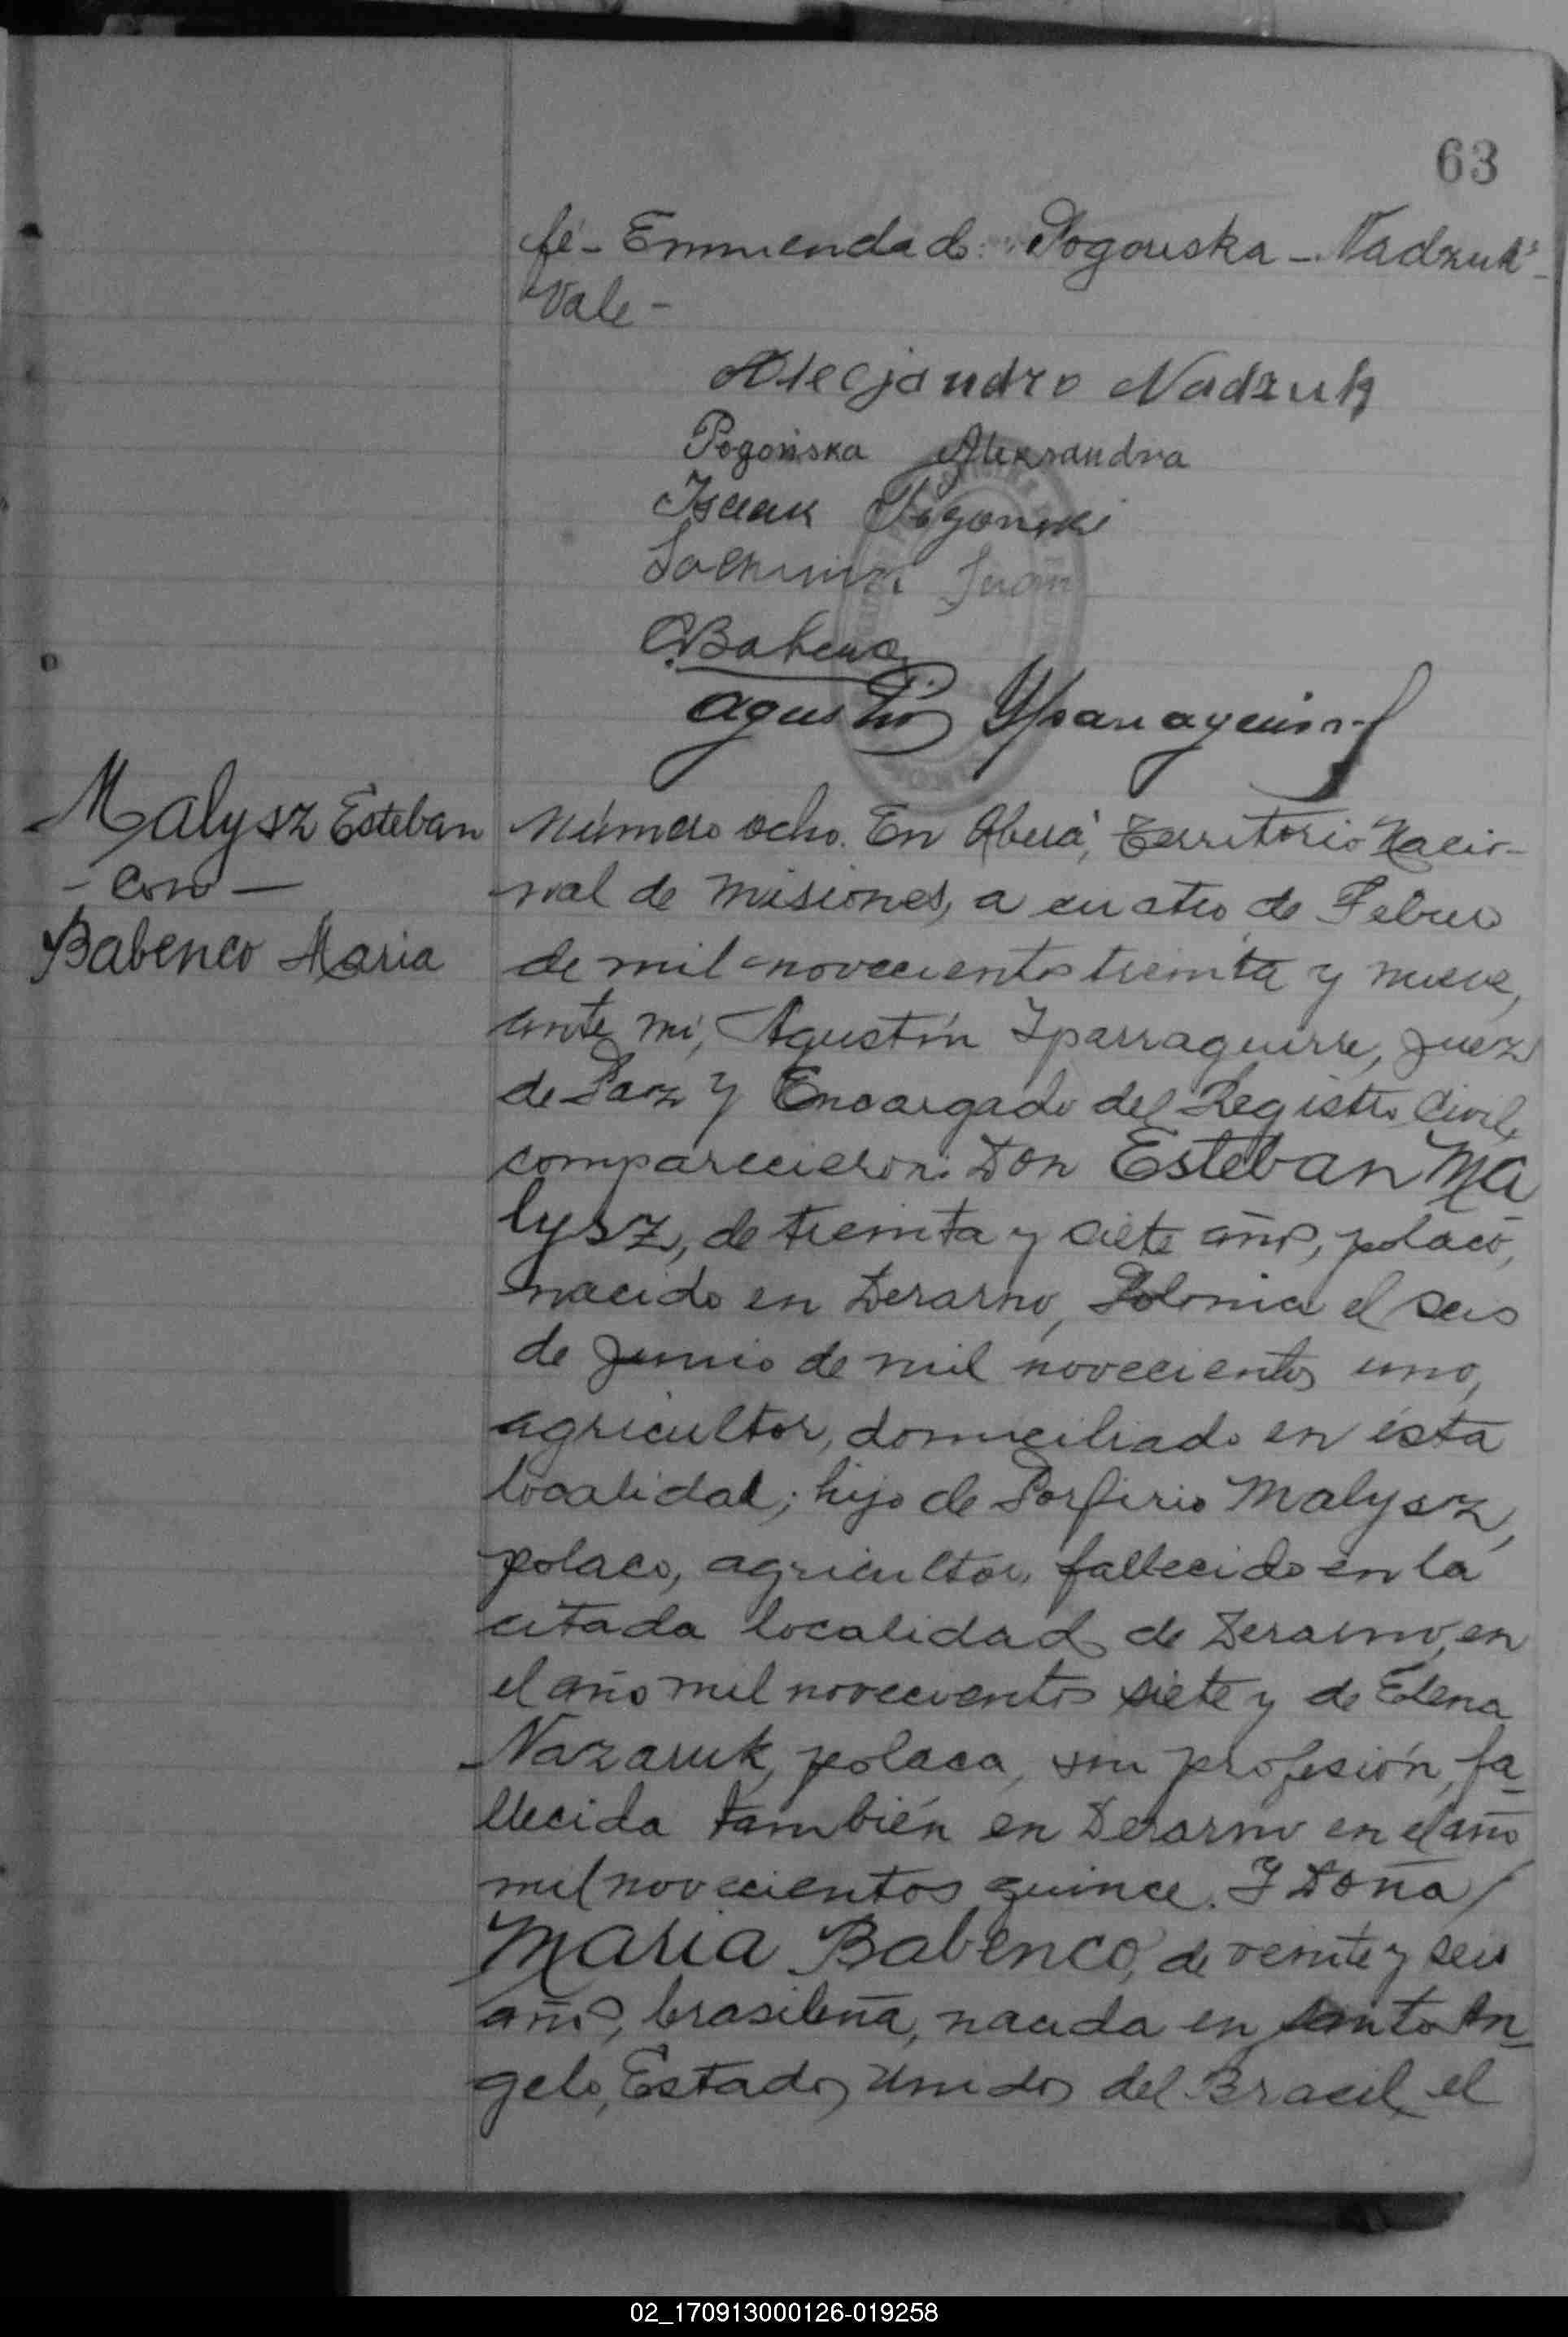 63
fé - Enmendado: Pogonska - Nadzuk -
Vale -
Alecjandro Nadzuk
Pogońska Aleksandra
Isaak Pogonski
Juan
Agustín Yparraguirre
Malysz Esteban
- Con -
Babenco Maria
Número ocho. En Oberá, Territorio Nacio-
nal de Misiones, a cuatro de Febrero
de mil novecientos treinta y nueve,
ante mí, Agustín Iparraguirre, Juez
de Paz y Encargado del Registro Civil,
comparecieron: Don Esteban Ma
lysz, de treinta y siete años, polaco,
nacido en Derarno, Polonia el seis
de Junio de mil novecientos uno,
agricultor, domiciliado en ésta
localidad; hijo de Porfirio Malysz,
polaco, agricultor, fallecido en la
citada localidad de Derarno, en
el año mil novecientos siete y de Elena
Nazaruk, polaca, sin profesión, fa-
llecida también en Derarno en el año
mil novecientos quince. Y Doña
Maria Babenco, de veinte y seis
años, brasileña, nacida en Santo An-
gelo, Estados Unidos del Brasil, el
02_170913000126-019258